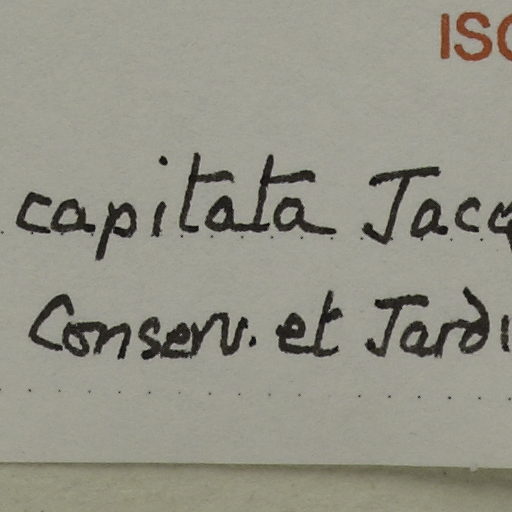 ISO
capitata Jacq
Conserv. et Jardi